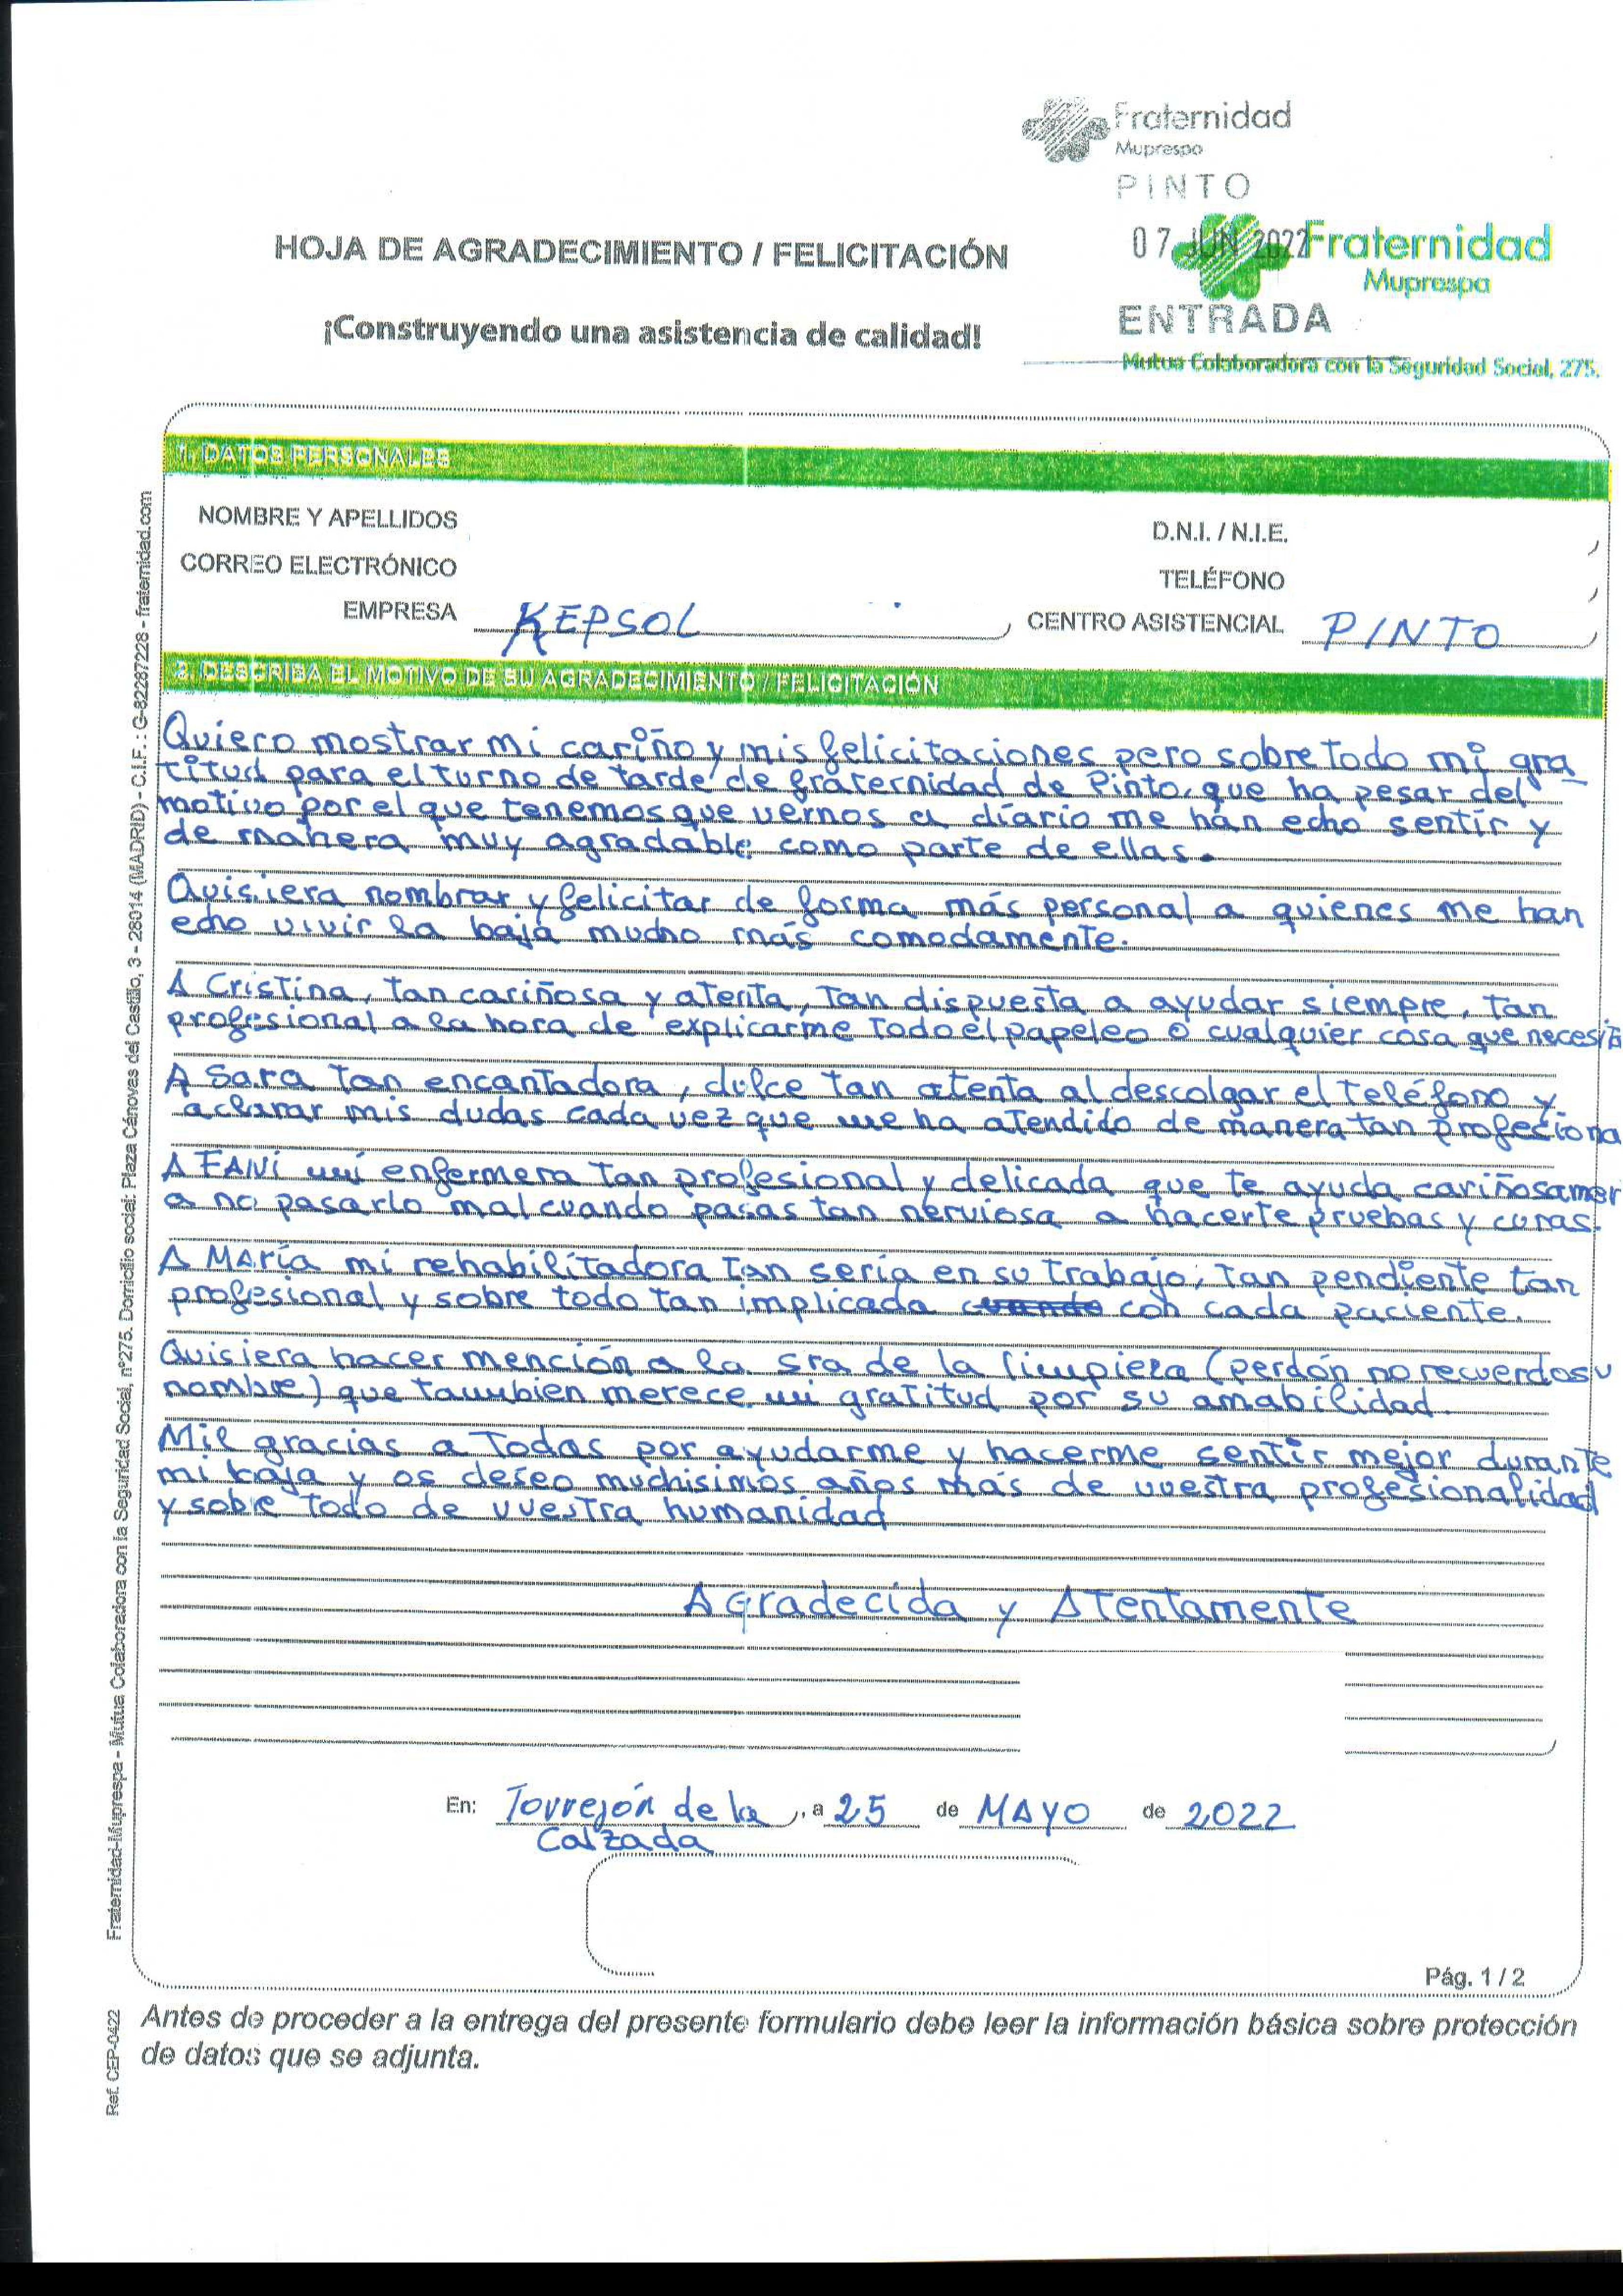 Fraternidad
Muprespa
PINTO
07 JUN 2022
ENTRADA
Fraternidad
Muprespa
Mutua Colaboradora con la Seguridad Social, 275.
HOJA DE AGRADECIMIENTO / FELICITACIÓN
¡Construyendo una asistencia de calidad!
1. DATOS PERSONALES
NOMBRE Y APELLIDOS
D.N.I. / N.I.E.
CORREO ELECTRÓNICO
TELÉFONO
EMPRESA KEPSOL
CENTRO ASISTENCIAL PINTO
2. DESCRIBA EL MOTIVO DE SU AGRADECIMIENTO / FELICITACIÓN
Quiero mostrar mi cariño y mis felicitaciones pero sobre todo mi gra
titud para el turno de tarde de fraternidad de Pinto, que ha pesar del
motivo por el que tenemos que vernos a diário me han echo sentir y
de manera muy agradable como parte de ellas.
Quisiera nombrar y felicitar de forma más personal a quienes me han
echo vivir la baja mucho más comodamente.
A Cristina, tan cariñosa y atenta, tan dispuesta a ayudar siempre, tan
profesional a la hora de explicarme todo el papeleo o cualquier cosa que necesite
A Sara tan encantadora, dulce tan atenta al descolgar el teléfono y
aclarar mis dudas cada vez que me ha atendido de manera tan profesiona
A FANI mi enfermera tan profesional y delicada que te ayuda cariñosamen
a no pasarlo mal cuando pasas tan nerviosa a hacerte pruebas y curas.
A María mi rehabilitadora tan seria en su trabajo, tan pendiente tan
profesional y sobre todo tan implicada cuando con cada paciente.
Quisiera hacer mención a la sra de la limpieza (perdón no recuerdo su
nombre) que tambien merece mi gratitud por su amabilidad.
Mil gracias a Todas por ayudarme y hacerme sentir mejor durante
mi baja y os deseo muchisimos años más de vuestra profesionalidad
y sobre todo de vuestra humanidad
Agradecida y Atentamente
En: Torrejón de la Calzada, a 25 de MAYO de 2022
Pág. 1 / 2
Antes de proceder a la entrega del presente formulario debe leer la información básica sobre protección
de datos que se adjunta.
Ref. CEP-0422
Fraternidad-Muprespa - Mutua Colaboradora con la Seguridad Social, nº275. Domicilio social: Plaza Cánovas del Castillo, 3 - 28014 (MADRID) - C.I.F. : G-82287228 - fraternidad.com